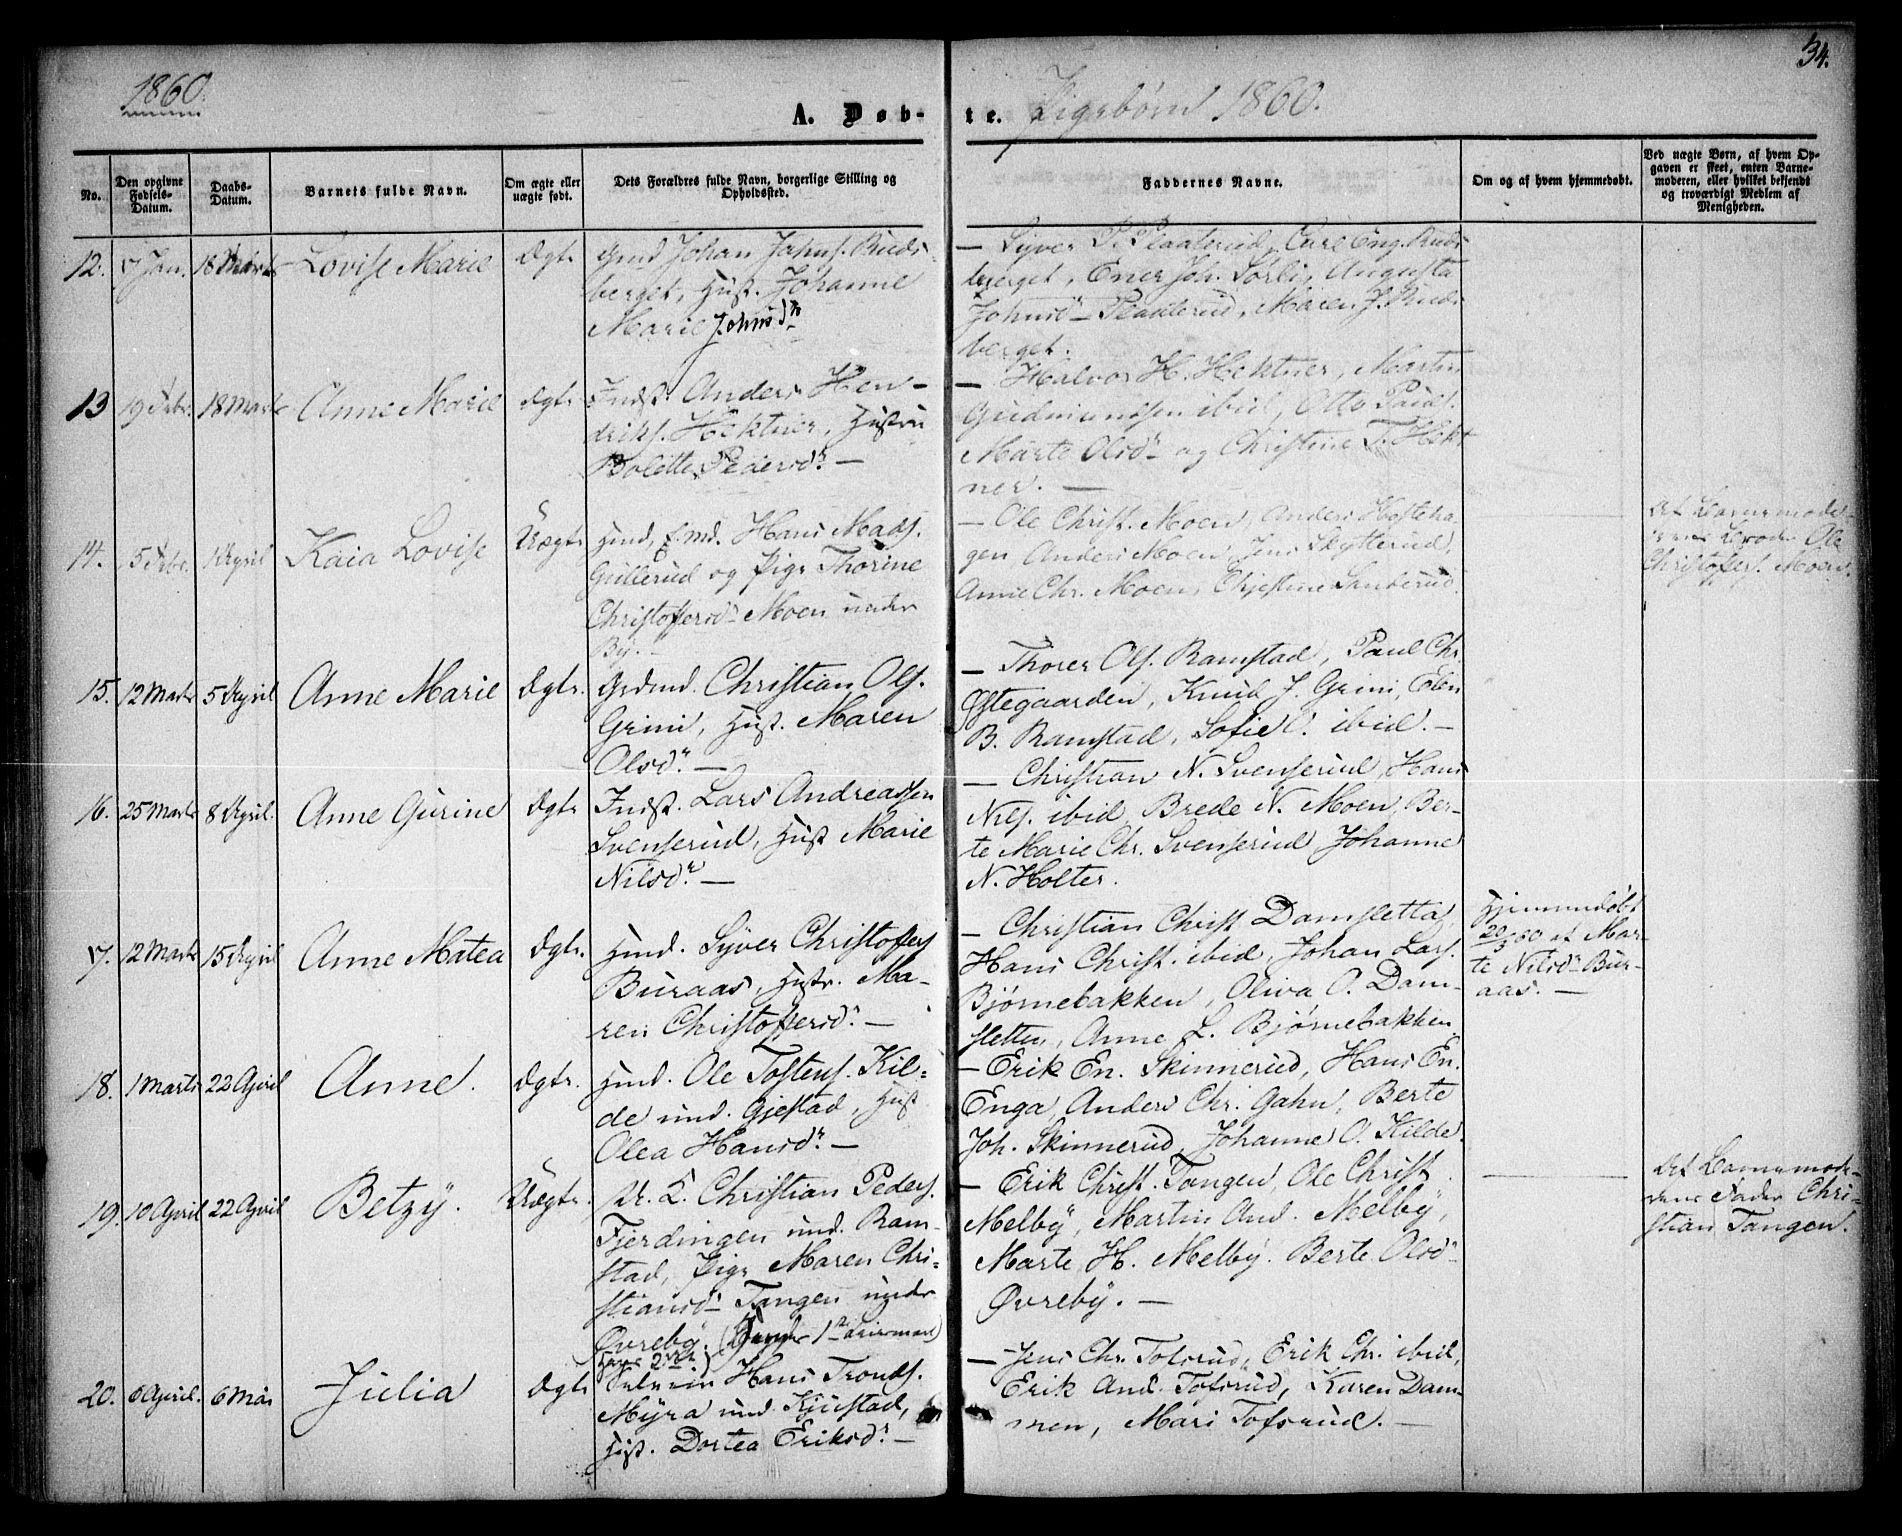 34.
1860.
A. Døb-
te. Pigebørn 1860.
No.
Den opgivne Fødsels-Datum.
Daabs-Datum.
Barnets fulde Navn.
Om ægte eller uægte født.
Dets Forældres fulde Navn, borgerlige Stilling og Opholdssted.
Faddernes Navne.
Om og af hvem hjemmedøbt.
Ved uægte Børn, af hvem Op-
gaven er skeet, enten Barne-
moderen, eller hvilket bekjendt
og troværdigt Medlem af
Menigheden.
12. 7 Jan. 18 Marts Lovise Marie Ægte
Johan Johns. Ruds-
berget, Hust. Johanne
Marie Johnsdr
— Syver P. Plaaterud, Carl Eng. Ruds-
berget, Ener Joh. Sørli, Augusta
Johnsdr Plaaterud, Maren J. Ruds-
berget.
13 19 Febr. 18 Marts Anne Marie Ægte
Indst. Anders Hen-
driks. Hektner, Hustru
Bolette Pedersdr. —
— Halvor H. Hektner, Martin
Gudmundsen ibid, Otto Pauls.
Marte Olsdr og Christine T. Hekt-
ner. —
14. 5 Febr. 1 April Kaia Lovise Uægte
Hans Mads.
Gullerud og Pige Thorine
Christoffersdr Moen under
By. —
— Ole Christ. Moen, Anders Hosleha-
gen, Anders Moen, Jens Skytterud,
Anne Chr. Moen, Christine Sanderud.
Af Barnemode-
rens Broder Ole
Christoffers. Moen.
15. 12 Marts 5 April Anne Marie Ægte.
Grdmd. Christian Ols.
Grini, Hust. Maren
Olsdr. —
— Thorer Ols. Ramstad, Paul Chr.
Østegaarden, Knud J. Grini, Elen
B. Ramstad, Sofie C. ibid. —
16. 25 Marts 8 April. Anne Gurine Ægte
Indst. Lars Andreassen
Svenserud, Hust Marie
Nilsdr. —
— Christian N. Svenserud, Hans
Nils. ibid, Brede N. Moen, Ber-
te Marie Chr. Svenserud Johanne
N. Holter.
17. 12 Marts 15 April Anne Matea Ægte.
Hmd. Syver Christoffers
Buraas, Hustr. Ma-
ren Christoffersdr. —
— Christian Christ Damsletta,
Hans Christ. ibid, Johan Lars.
Bjørnebakken, Oliva O. Dam-
sletten, Anne L. Bjørnebakken.
Hjemmedøbt
20/3 60 af Mar-
te Nilsdr Bur-
aas. —
18. 1 Marts 22 April Anne. Ægte.
Hmd. Ole Tostens. Kil-
de und. Gjestad, Hust
Olea Hansdr. —
— Erik En. Skinnerud, Hans En.
Enga, Anders Chr. Gahn, Berte
Joh. Skinnerud, Johanne O. Kilde.
19. 10 April 22 April Betzÿ. Uægte.
U. K. Christian Peders.
Fjerdingen und. Ram-
stad, Pige Maren Chri-
stiansdr Tangen under
Øvrebÿ. (Begges 1ste Leiermaal)
— Erik Christ. Tangen, Ole Christ.
Melbÿ, Martin And. Melbÿ,
Marte H. Melbÿ. Berte Olsdr
Øvrebÿ. —
Af Barnemode-
rens Fader Chri-
stian Tangen.
20. 6 April. 6 Mai Julia Ægte
Hans Tronds.
Mÿra und. Kjustad,
Hust. Dortea Eriksdr. —
— Jens Chr. Tofsrud, Erik Chr. ibid,
Erik And. Tofsrud, Karen Dam-
men, Mari Tofsrud. —